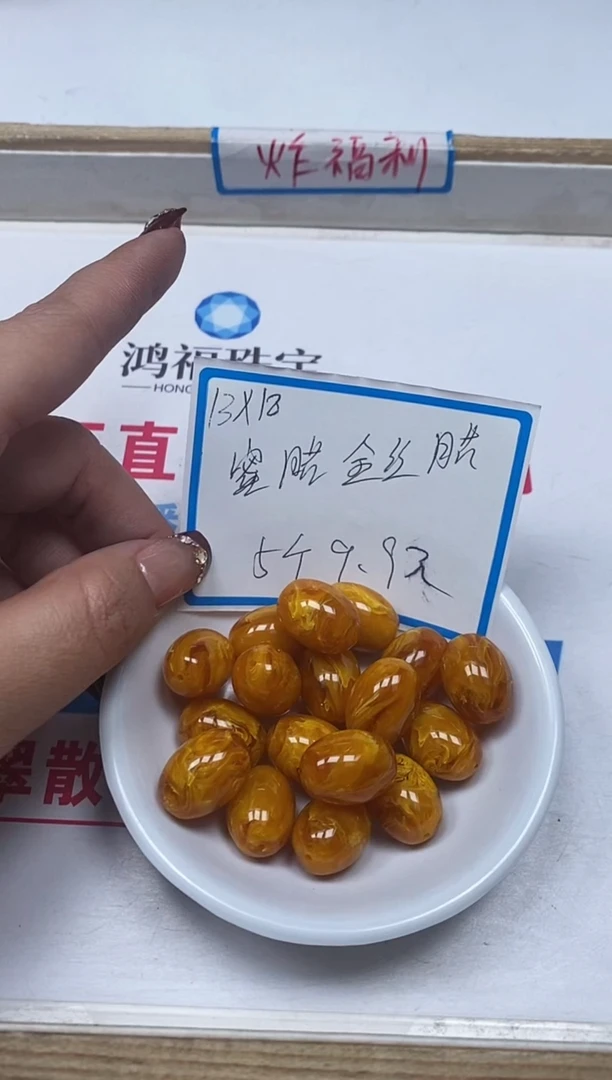 炸福利
鸿福珠宝
HONG
直
13X18
蜜腊金丝腊
5个9.9元
翠散